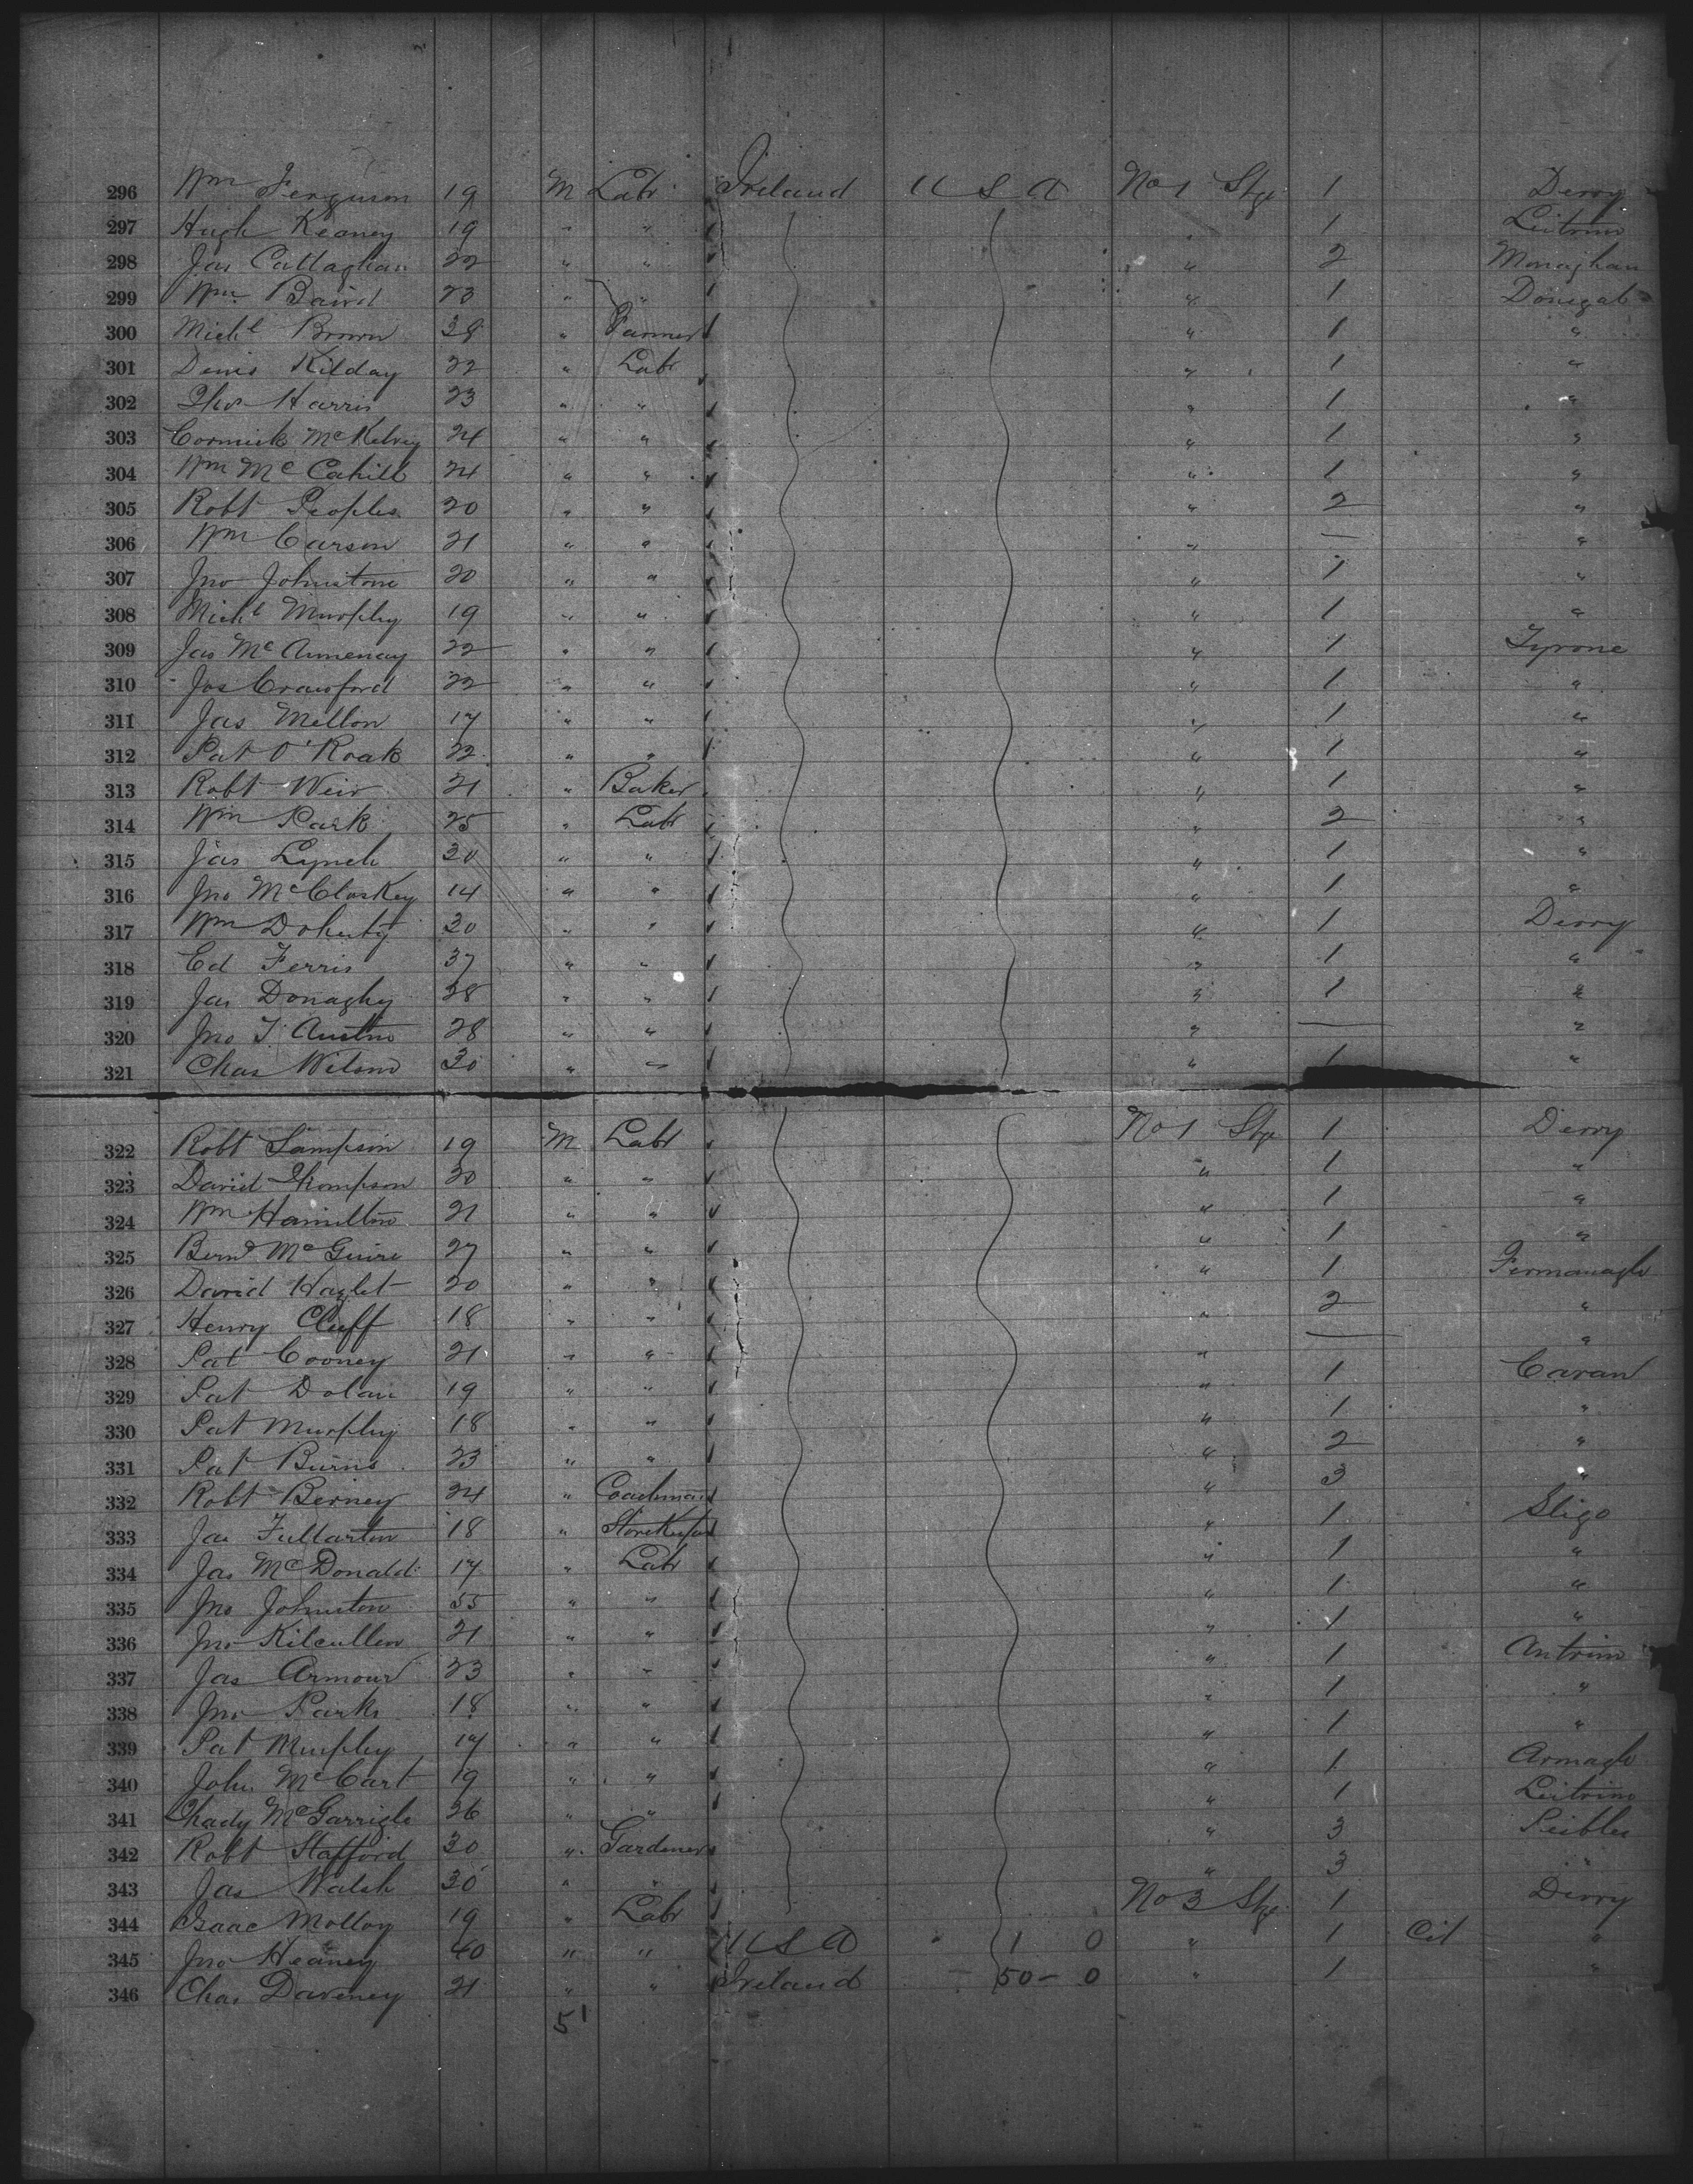 296 Wm Ferguson 19 M Labr Ireland U S A No 1 Stge 1 Derry
297 Hugh Keaney 19 " " " 1 Leitrim
298 Jas Callaghan 22 " " " 2 Monaghan
299 Wm Baird 23 " " " 1 Donegal
300 Michl Brown 38 " Farmer " 1 "
301 Denis Kilday 22 " Labr " 1 "
302 Thos Harris 23 " " " 1 "
303 Cormick McKelvey 24 " " " 1 "
304 Wm McCahill 24 " " " 1 "
305 Robt Peoples 20 " " " 2 "
306 Wm Carson 21 " " " — "
307 Jno Johnstone 20 " " " 1 "
308 Michl Murphy 19 " " " 1 "
309 Jas McAnnenay 22 " " " 1 Tyrone
310 Jos Crawford 22 " " " 1 "
311 Jas Mellon 17 " " " 1 "
312 Pat O'Roak 22 " " " 1 "
313 Robt Weir 21 " Baker " 1 "
314 Wm Park 25 " Labr " 2 "
315 Jas Lynch 30 " " " 1 "
316 Jno McCloskey 14 " " " 1 "
317 Wm Doherty 30 " " " 1 Derry
318 Ed Ferris 37 " " " 1 "
319 Jas Donaghy 38 " " " 1 "
320 Jno T. Austin 28 " " " — "
321 Chas Wilson 30 " " " 1 "
322 Robt Sampson 19 M Labr No 1 Stge 1 Derry
323 David Thompson 20 " " " 1 "
324 Wm Hamilton 21 " " " 1 "
325 Bernd McGuire 27 " " " 1 "
326 David Hazlet 20 " " " 1 Fermanagh
327 Henry Cluff 18 " " " 2 "
328 Pat Cooney 21 " " " — "
329 Pat Dolan 19 " " " 1 Cavan
330 Pat Murphy 18 " " " 1 "
331 Pat Burns 23 " " " 2 "
332 Robt Berney 24 " Coachman " 3 "
333 Jas Fullarton 18 " Storekeeper " 1 Sligo
334 Jas McDonald 17 " Labr " 1 "
335 Jno Johnston 55 " " " 1 "
336 Jno Kilcullen 21 " " " 1 "
337 Jas Armour 23 " " " 1 Antrim
338 Jno Parks 18 " " " 1 "
339 Pat Murphy 17 " " " 1 "
340 John McCart 19 " " " 1 Armagh
341 Thady McGarrigle 26 " " " 1 Leitrim
342 Robt Stafford 30 " Gardener " 3 Peibles
343 Jas Walsh 30 " " " 3 "
344 Isaac Molloy 19 " Labr No 3 Stge 1 Derry
345 Jno Heaney 40 " " U S A " 1 0 " 1 Cit "
346 Chas Daveney 21 " " Ireland — 50 – 0 " 1 "
51